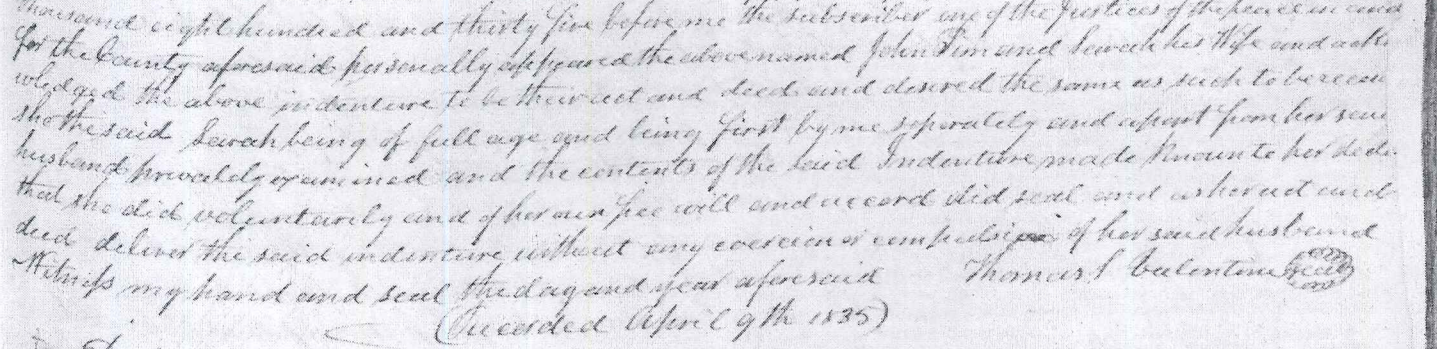 thousand eight hundred and thirty five before me the subscriber one of the Justices of the peace in and
for the County aforesaid personally appeared the above named John Pim and Sarah his Wife and ackn
owledged the above indenture to be their act and deed and desired the same as such to be recor
she the said Sarah being of full age and being first by me seperately and apart from her said
husband privately examined and the contents of the said Indenture made known to her decl
that she did voluntarily and of her own free will and accord did seal and as her act and
deed deliver the said indenture without any coercion or compulsion of her said husband
Witness my hand and seal the day and year aforesaid Thomas S Valentine Seal
(Recorded April 9th 1835)